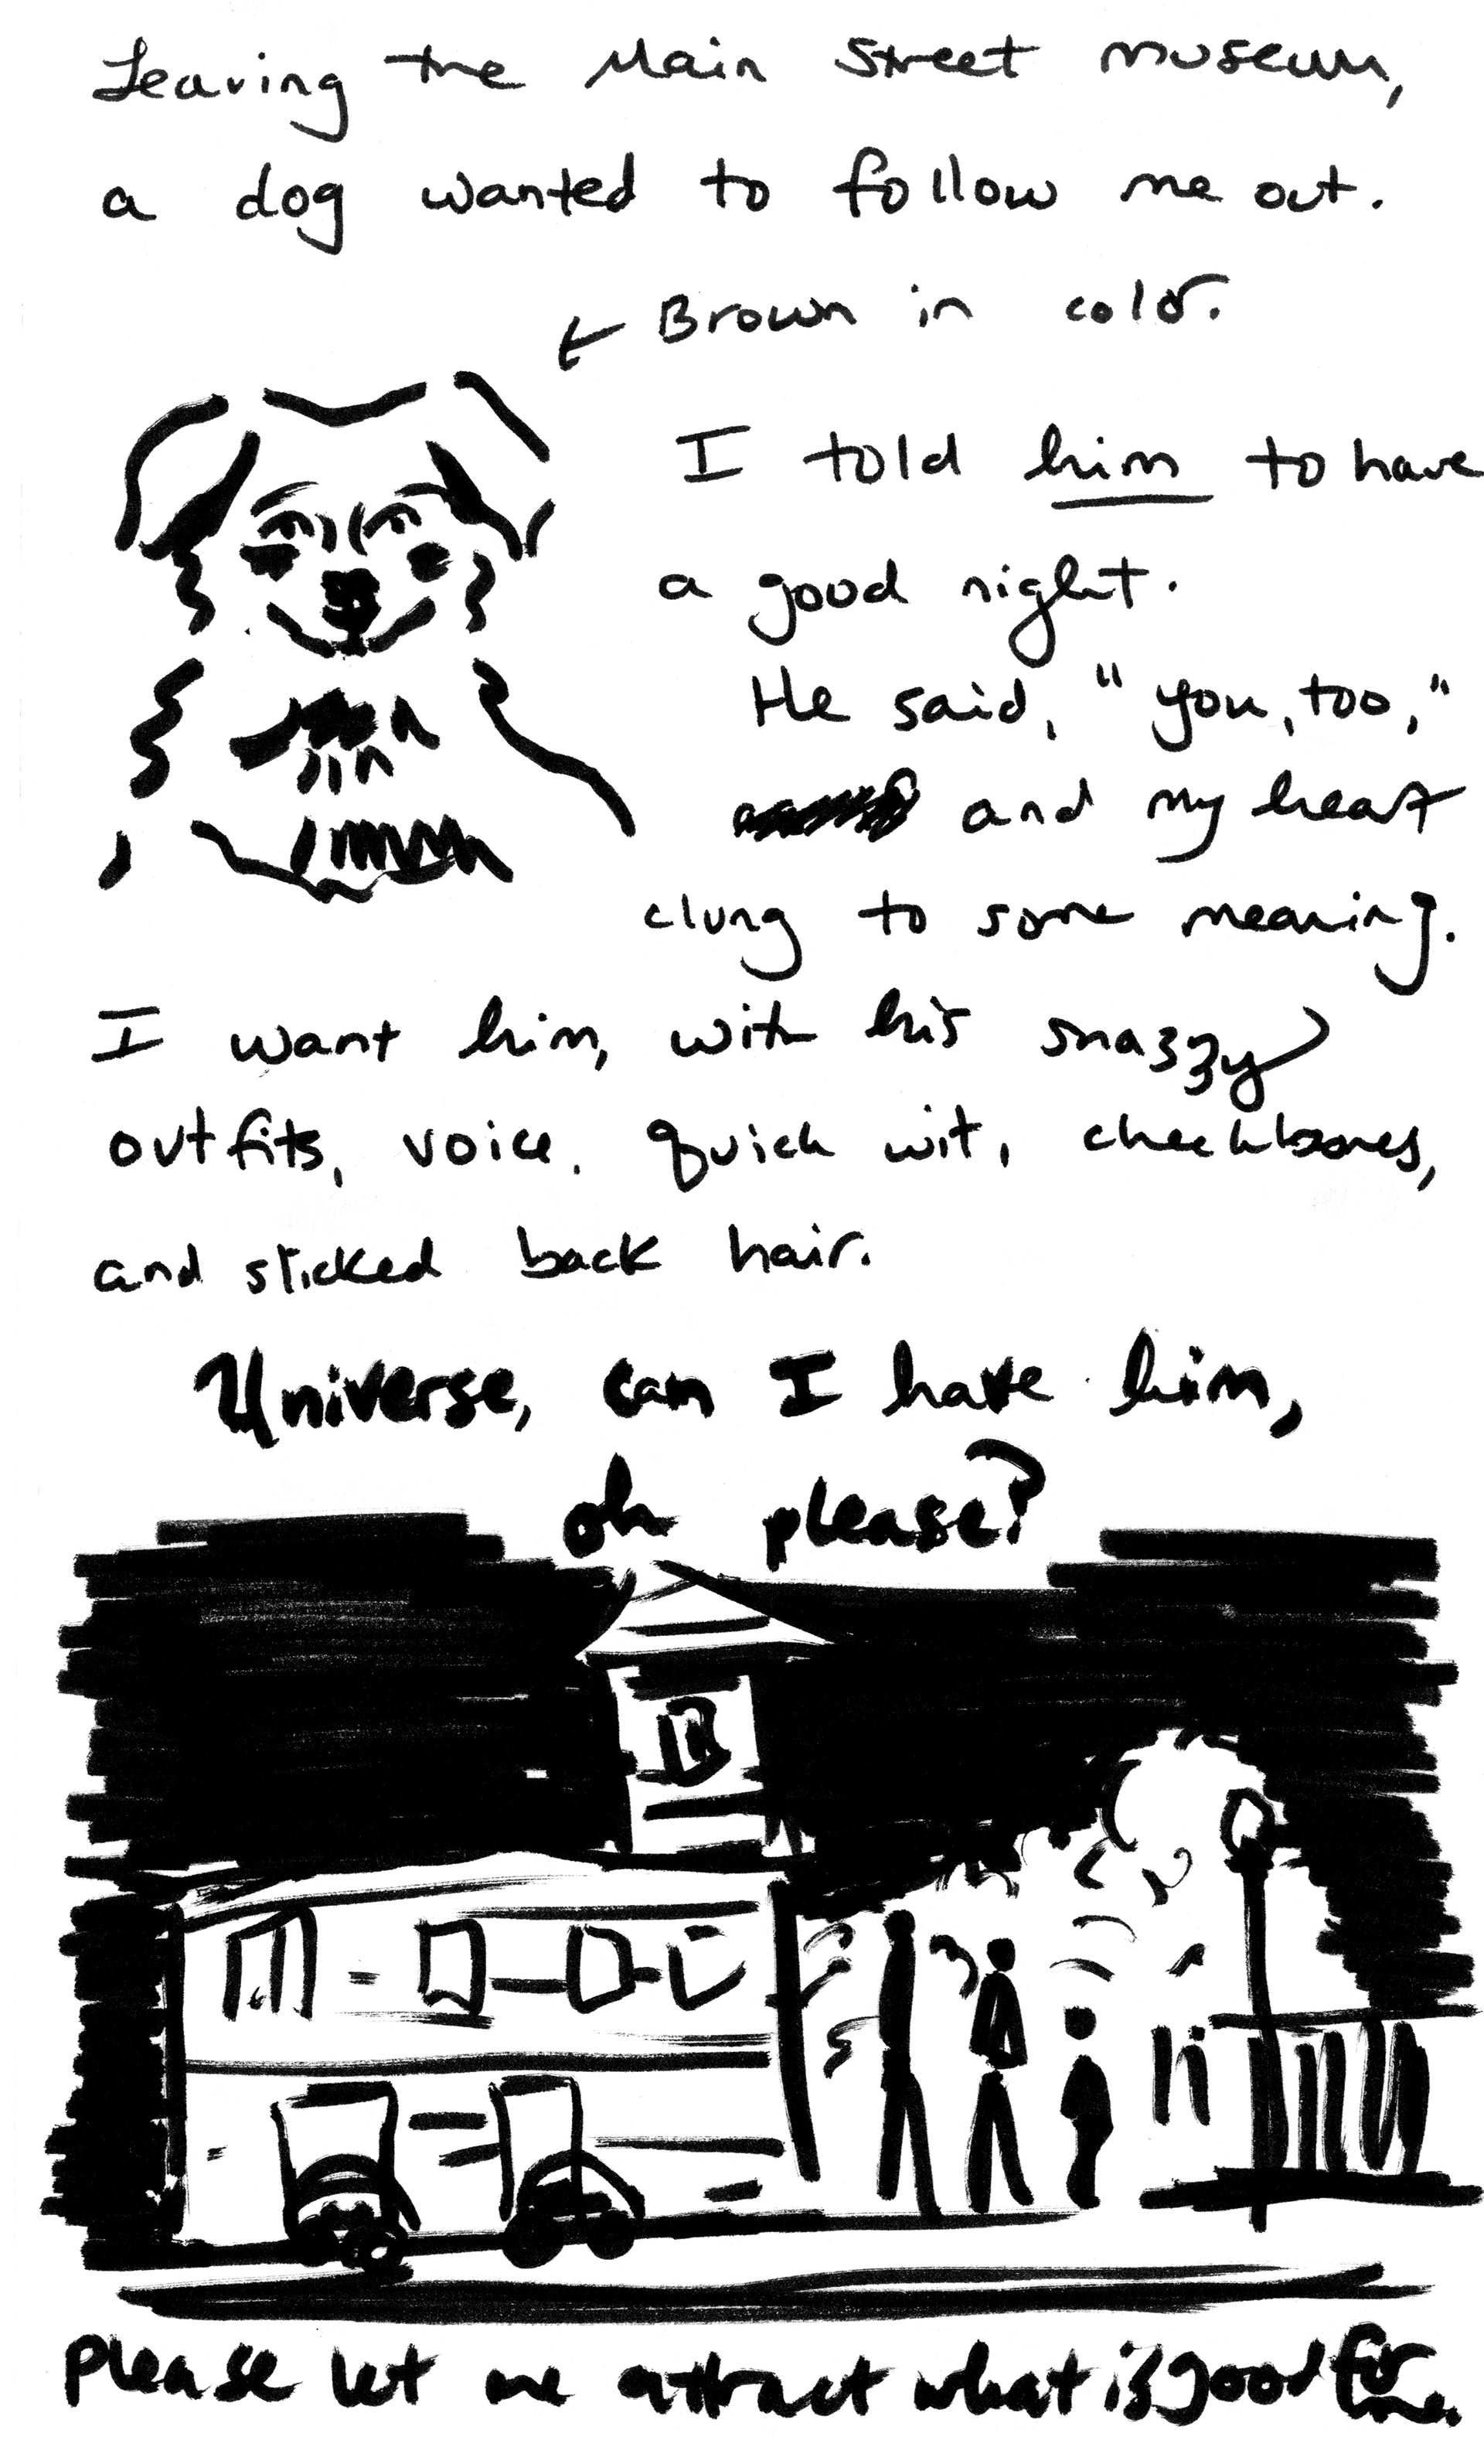 Leaving the Main Street museum,
a dog wanted to follow me out.
← Brown in color.
I told him to have
a good night.
He said, "you, too,"
and my heart
clung to some meaning.
I want him, with his snazzy
outfits, voice, quick wit, cheekbones,
and slicked back hair.
Universe, can I have him,
oh please?
please let me attract what is good for me.